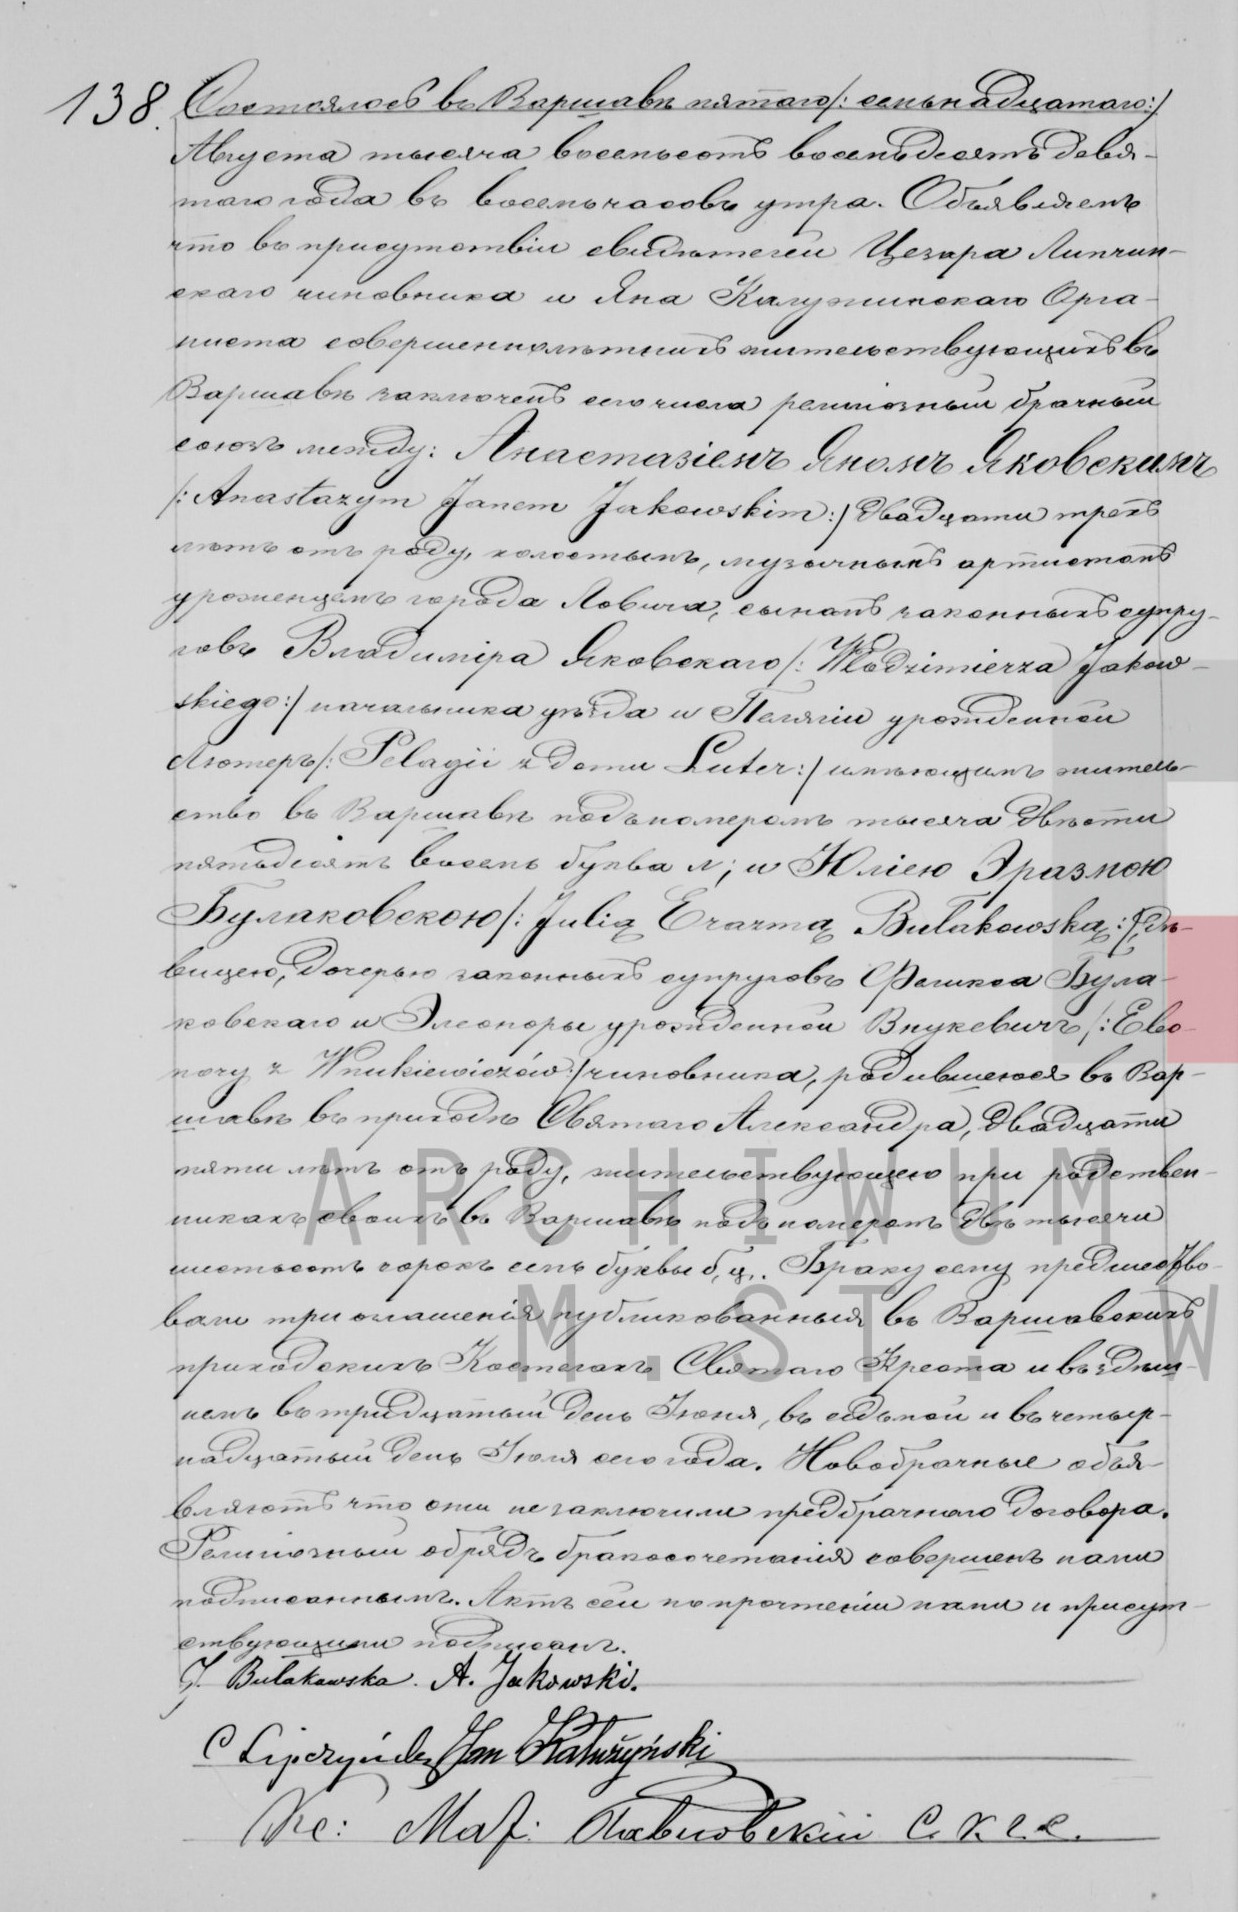 138. Состоялось въ Варшавѣ пятаго /: семьнадцатаго :/
Августа тысяча восемьсотъ восемьдесятъ девя-
таго года въ восемь часовъ утра. Объявляемъ
что въ присутствіи свидѣтелей Цезара Липчин-
скаго чиновника и Яна Калужинскаго Орга-
ниста совершеннолѣтнихъ жительствующихъ въ
Варшавѣ заключенъ сего числа религіозный брачный
союзъ между: Анастазіемъ Яномъ Яковскимъ
/: Anastazym Janem Jakowskim :/ двадцати трехъ
лѣтъ отъ роду, холостымъ, музычнымъ артистомъ
уроженцемъ города Ловича, сыномъ законныхъ супру-
говъ Владиміра Яковскаго /: Włodzimierza Jakow-
skiego :/ начальника уѣзда и Пелягіи урожденной
Лютеръ /: Pelagii z domu Luter :/ имѣющимъ житель-
ство въ Варшавѣ подъ номеромъ тысяча двѣсти
пятьдесятъ восемь буква л; и Юліею Эразмою
Булаковскою /: Julią Erazmą Bułakowską :/ дѣ-
вицею, дочерью законныхъ супруговъ Феликса Була-
ковскаго и Элеоноры урожденной Внукевичъ /: Eleo-
nory z Wnukiewiczów :/ чиновника, родившеюся въ Вар-
шавѣ въ приходѣ Святаго Александра, двадцати
пяти лѣтъ отъ роду, жительствующею при родствен-
никахъ своихъ въ Варшавѣ подъ номеромъ двѣ тысячи
шестьсотъ сорокъ семь буквы б, ц,. Браку сему предшество-
вали три оглашенія публикованныя въ Варшавскихъ
приходскихъ Костелахъ Святаго Креста и въ здѣш-
немъ въ тридцатый день Іюня, въ седьмой и въ четыр-
надцатый день Іюля сего года. Новобрачные объя-
вляютъ что они не заключили предбрачнаго договора.
Религіозный обрядъ бракосочетанія совершенъ нами
подписаннымъ. Актъ сей по прочтеніи нами и присут-
ствующими подписанъ.
J. Bułakowska. A. Jakowski.
C Lipczyński Jan Kałużyński
Кс: Маf: Павловскій С. К. Г. С.
ARCHIWUM
M. ST. W